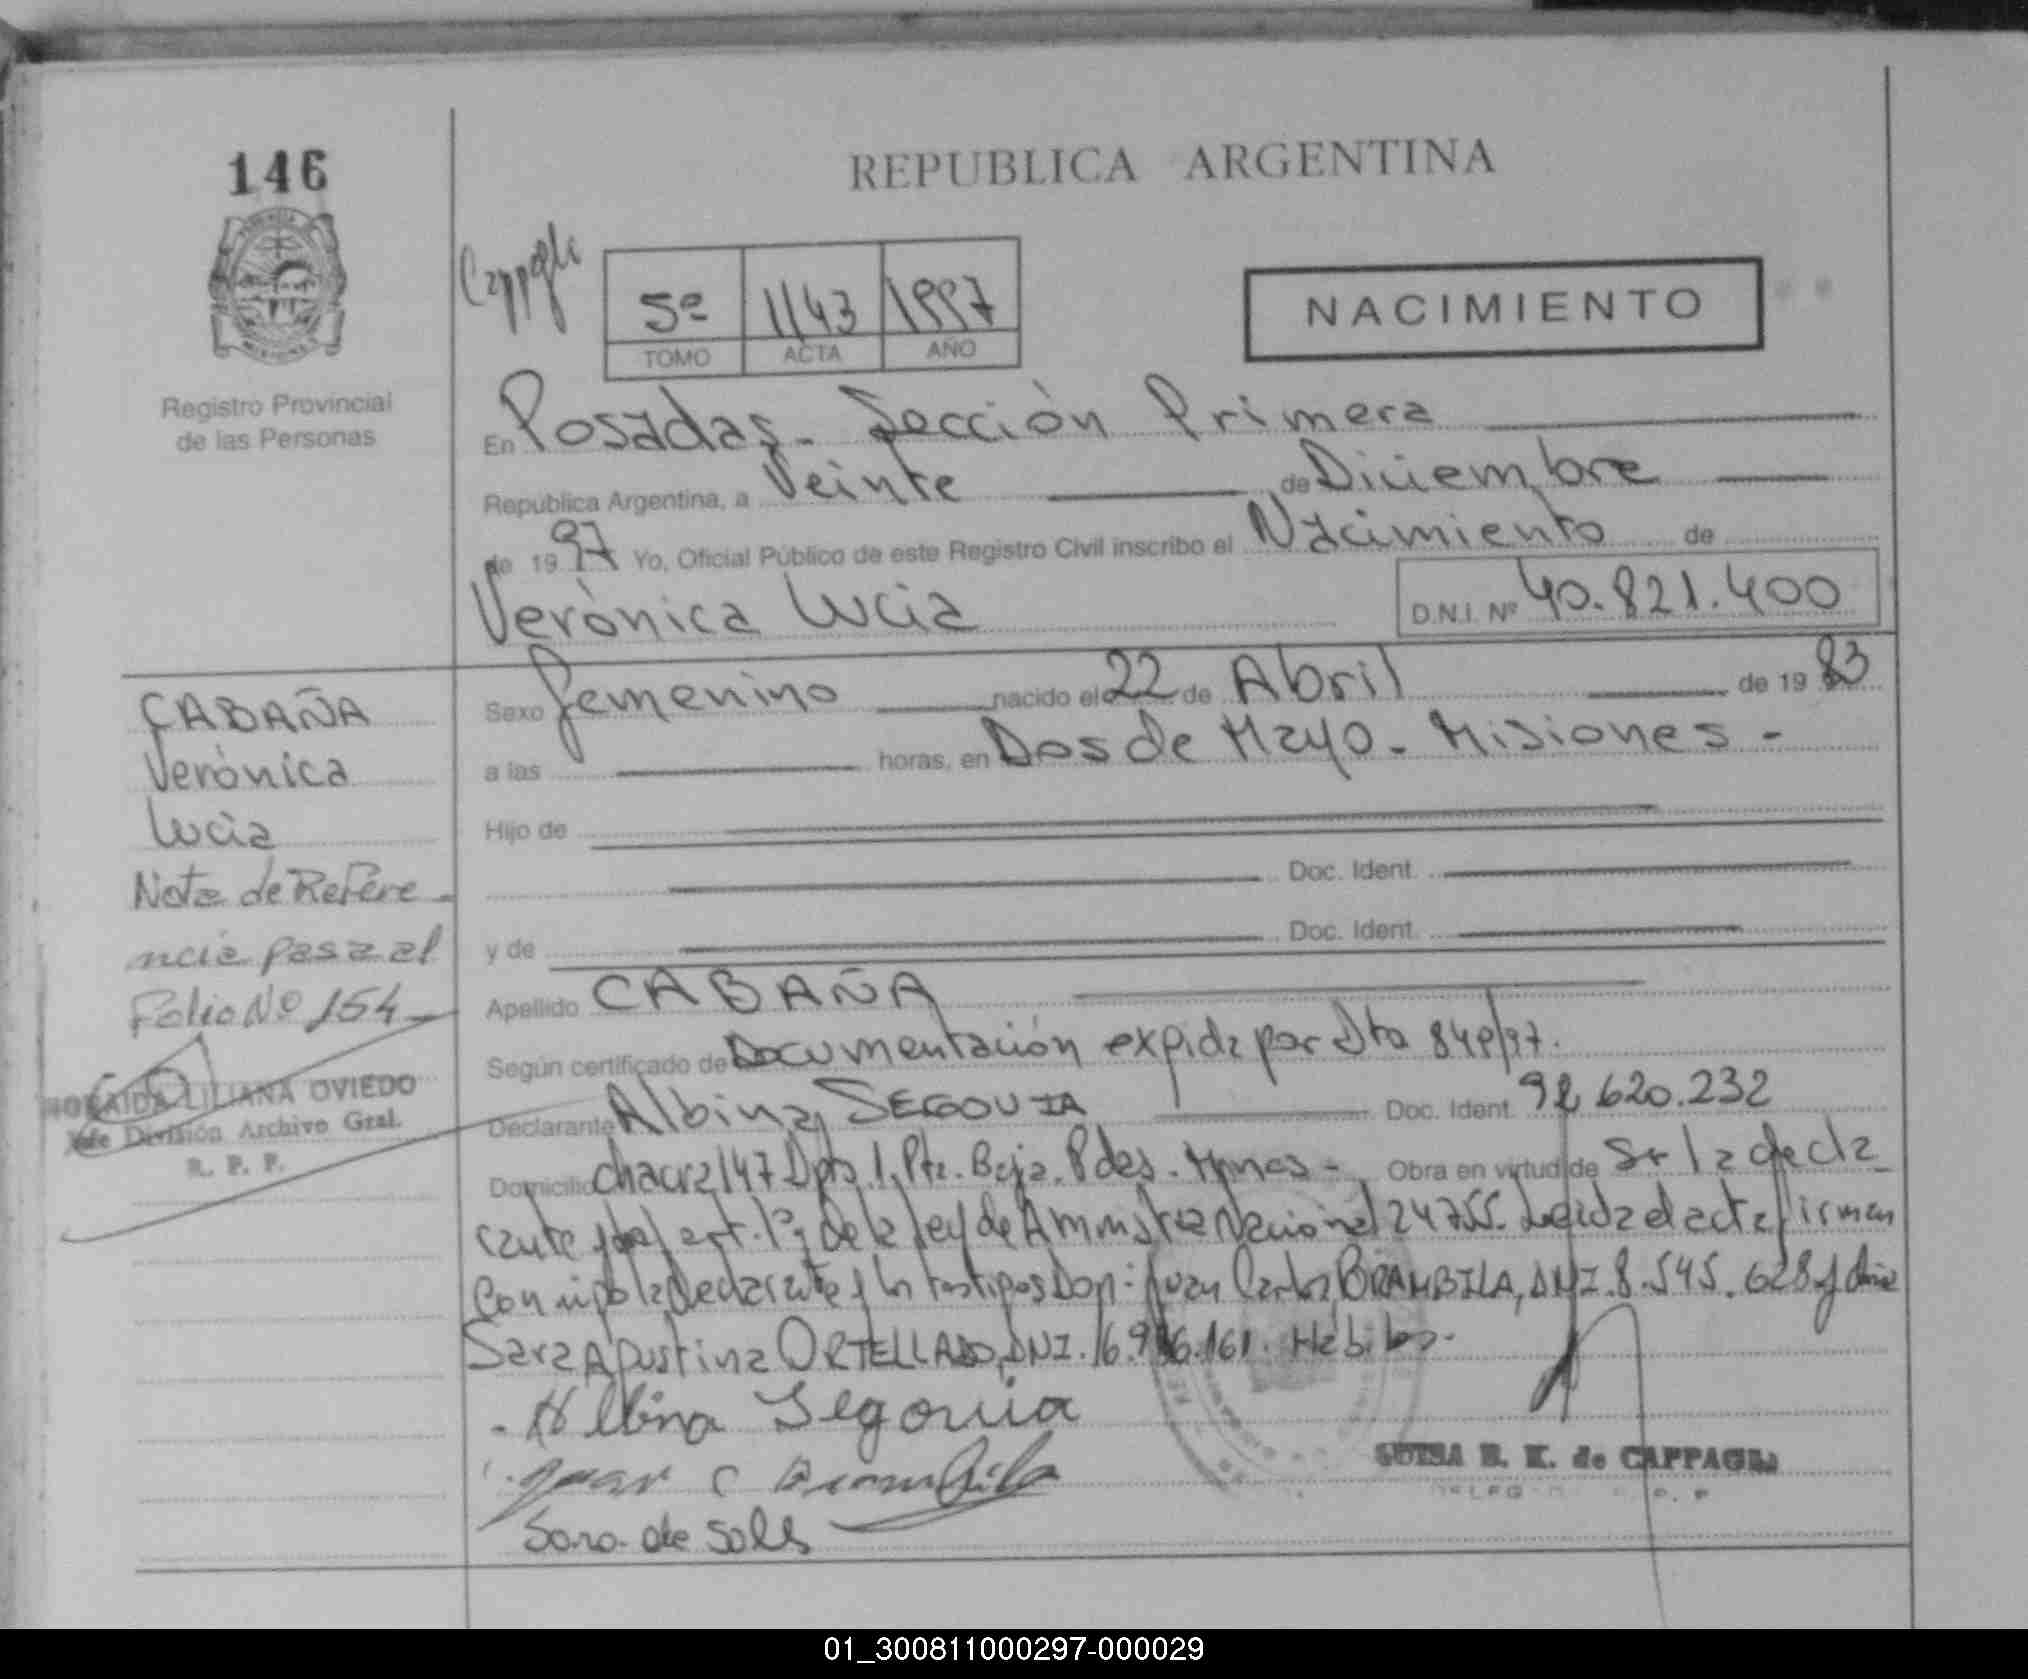 146
REPUBLICA ARGENTINA
5º 1143 1997
TOMO ACTA AÑO
NACIMIENTO
Registro Provincial
de las Personas
En Posadas - Sección Primera
Republica Argentina, a Veinte de Diciembre
de 1997 Yo, Oficial Público de este Registro Civil inscribo el Nacimiento de
Verónica Lucia D.N.I. Nº 40.821.400
CABAÑA
Verónica
Lucia
Nota de Refere-
ncia pasa al
Folio Nº 154
LILIANA OVIEDO
Jefe División Archivo Gral.
R. P. P.
Sexo femenino nacido el 22 de Abril de 1983
a las horas, en Dos de Mayo - Misiones -
Hijo de
Doc. Ident.
y de Doc. Ident.
Apellido CABAÑA
Según certificado de Documentación expida por Dto 849/97.
Declarante Albina SEGOVIA Doc. Ident. 92.620.232
Domicilio chacra 147 Dpto. 1, Pta. Baja. Pdas. Mnes - Obra en virtud de ser la decla
rante y del art. 1º de la ley de Amnistia Nacional 24755. Leida el acta firman
con migo la declarante y los testigos Don: Juan Carlos BRAMBILA, DNI. 8.545.628 y doña
Sara Agustina ORTELLADO, DNI. 16. .161. Hábiles.
Albina Segovia
Juan C Brambila
Sara de Solis
LUISA R. K. de CAPPAGLI
01_300811000297-000029